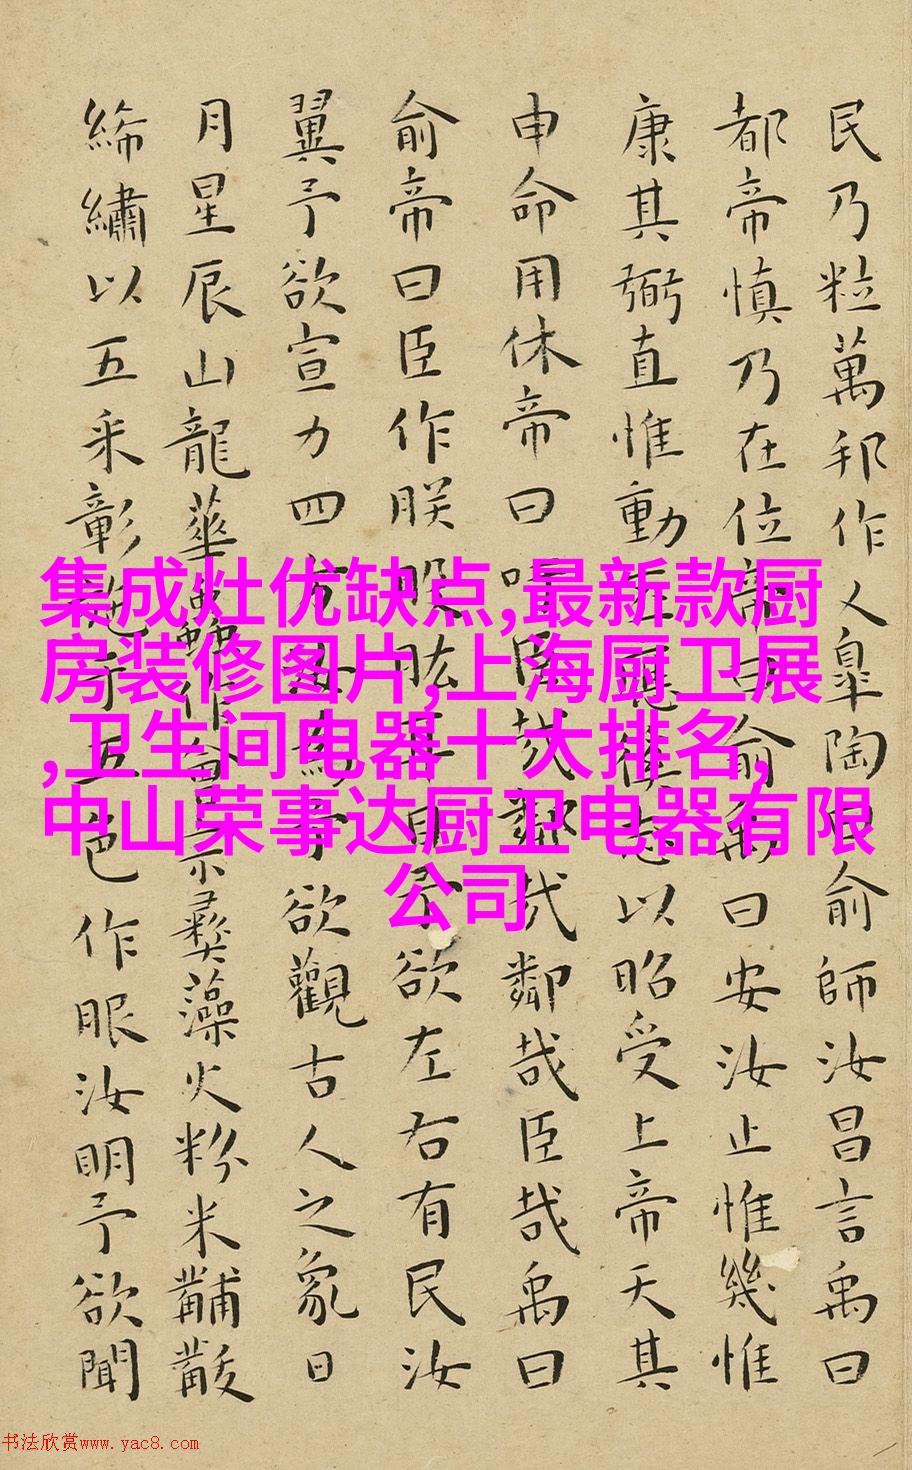 民乃粒萬邦作人皐陶曰俞師汝昌言禹曰
都帝慎乃在位帝曰俞禹曰安汝止惟幾惟
康其弼直惟動丕應徯志以昭受上帝天其
申命用休帝曰吁臣哉鄰哉鄰哉臣哉禹曰
俞帝曰臣作朕股肱耳目予欲左右有民汝
翼予欲宣力四方汝為予欲觀古人之象日
月星辰山龍華蟲作會宗彝藻火粉米黼黻
絺繡以五采彰施于五色作服汝明予欲聞
集成灶优缺点,最新款厨
房装修图片,上海厨卫展
,卫生间电器十大排名,
中山荣事达厨卫电器有限
公司
书法欣赏www.yac8.com